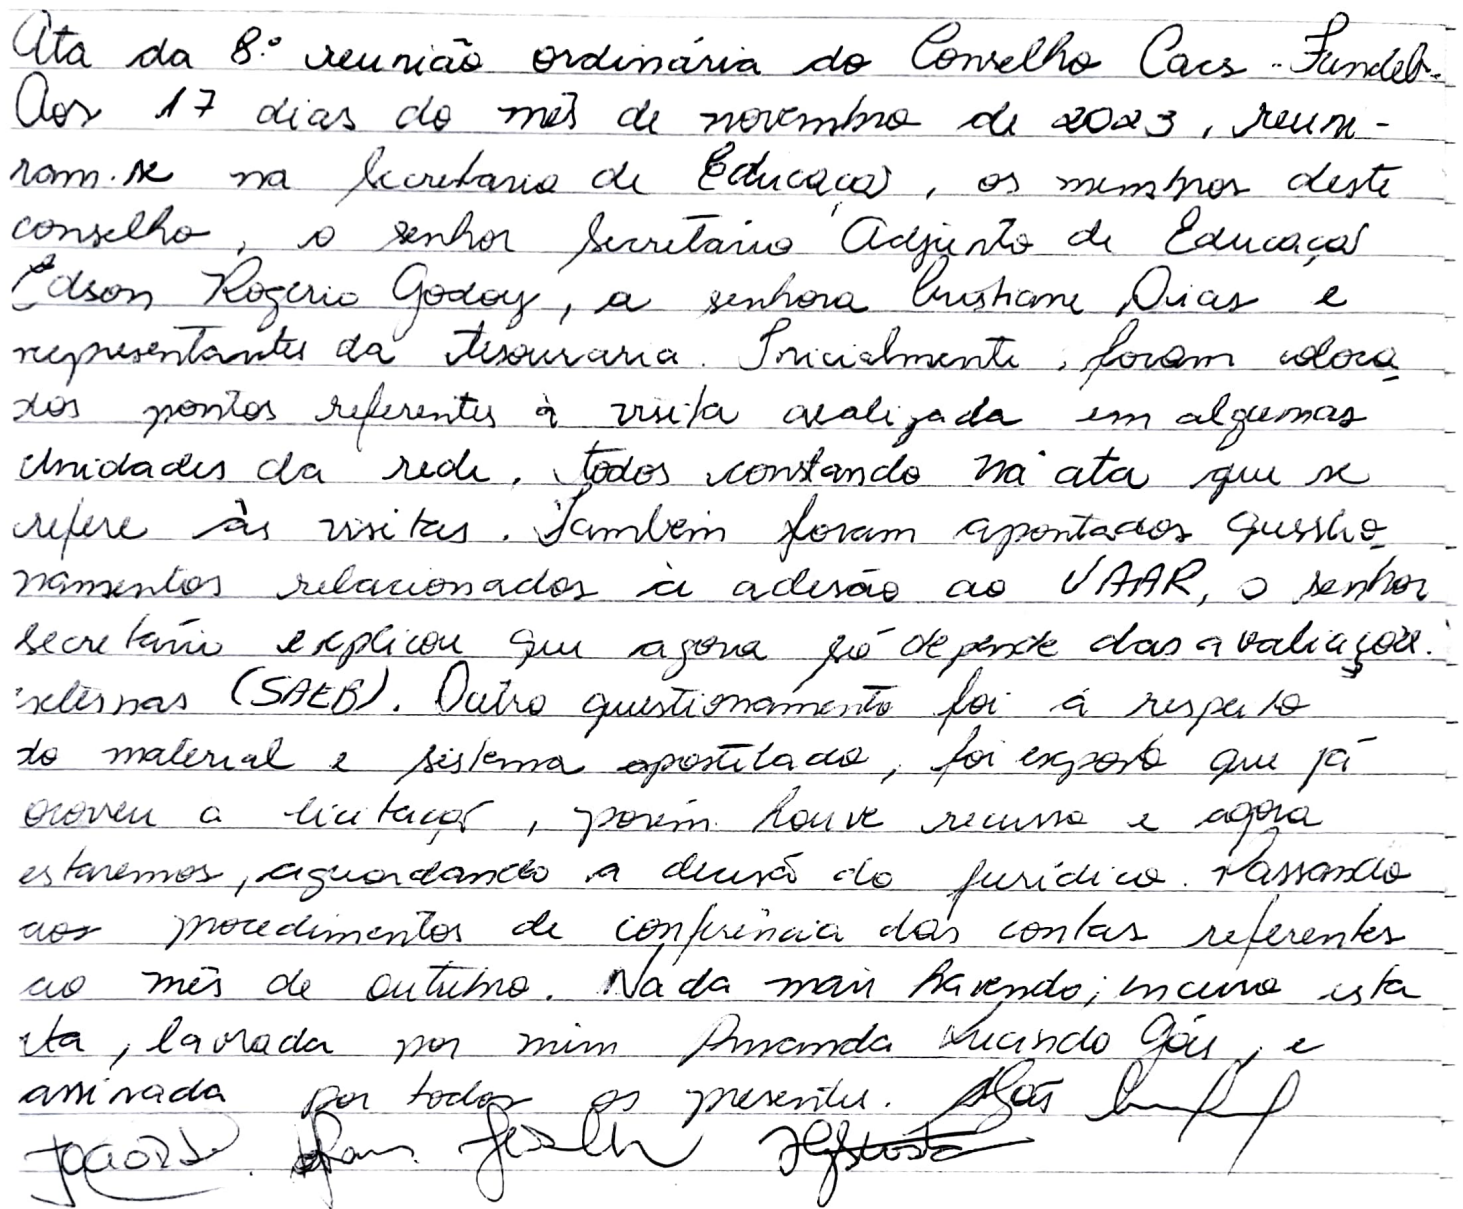 Ata da 8.º reunião ordinária do Conselho Cacs - Fundeb.
Aos 17 dias do mês de novembro de 2023, reuni-
ram-se na Secretaria de Educação, os membros deste
conselho, o senhor Secretário Adjunto de Educação
Edson Rogerio Godoy, a senhora Cristiane Dias e
representantes da tesouraria. Inicialmente, foram coloca
dos pontos referentes à visita realizada em algumas
Unidades da rede, todos constando na ata que se
refere às visitas. Também foram apontados questio
namentos relacionados à adesão ao VAAR, o senhor
secretário explicou que agora só depende das avaliações
externas (SAEB). Outro questionamento foi á respeito
do material e sistema apostilado, foi exposto que já
ocorreu a licitação, porém houve recurso e agora
estaremos, aguardando a decisão do jurídico. Passando
aos procedimentos de conferência das contas referentes
ao mês de outubro. Nada mais havendo, encerro esta
ata, lavrada por mim Amanda Lucindo Góis, e
assinada por todos os presentes. AGóis